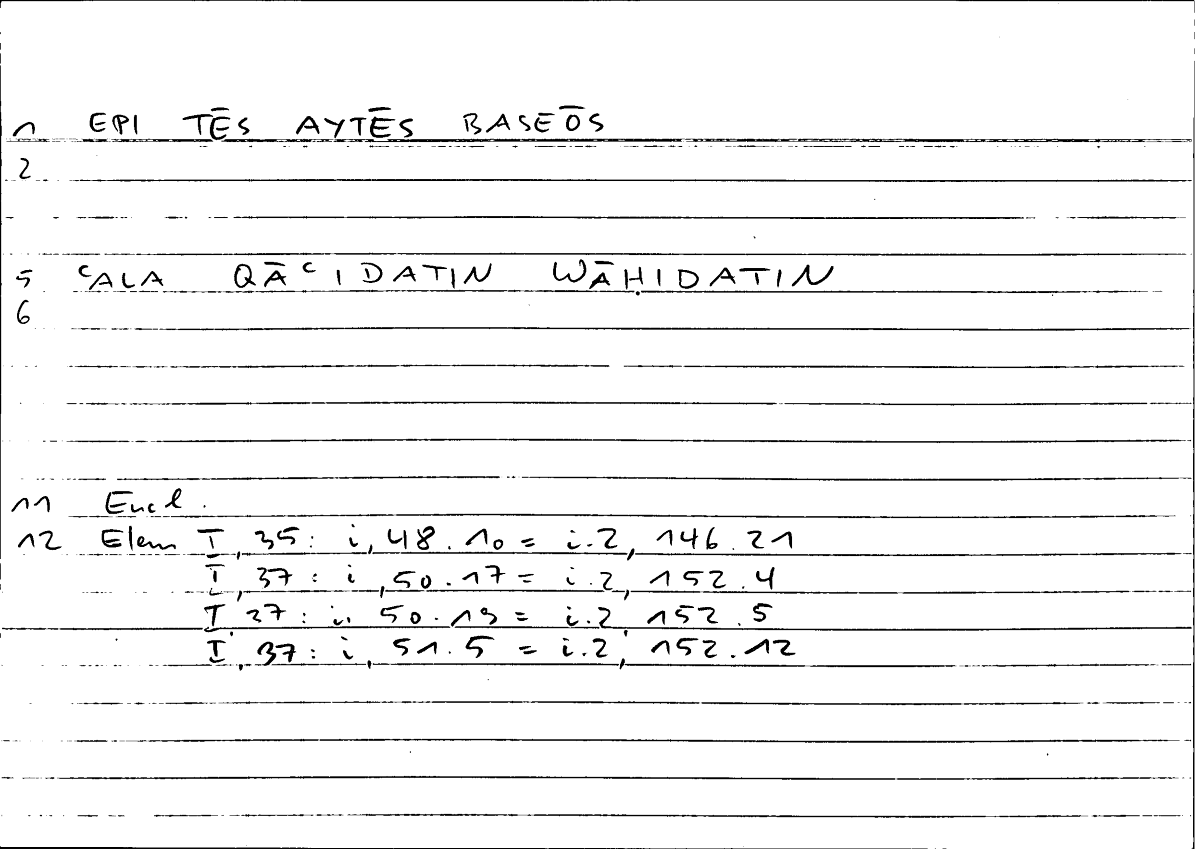 1 EPI TĒS AYTĒS BASEŌS
2
5 ʿALA QĀʿIDATIN WĀḤIDATIN
6
11 Eucl.
12 Elem I, 35: i, 48.10 = i.2, 146.21
I, 37: i, 50.17 = i.2, 152.4
I, 37: i, 50.19 = i.2, 152.5
I, 37: i, 51.5 = i.2, 152.12